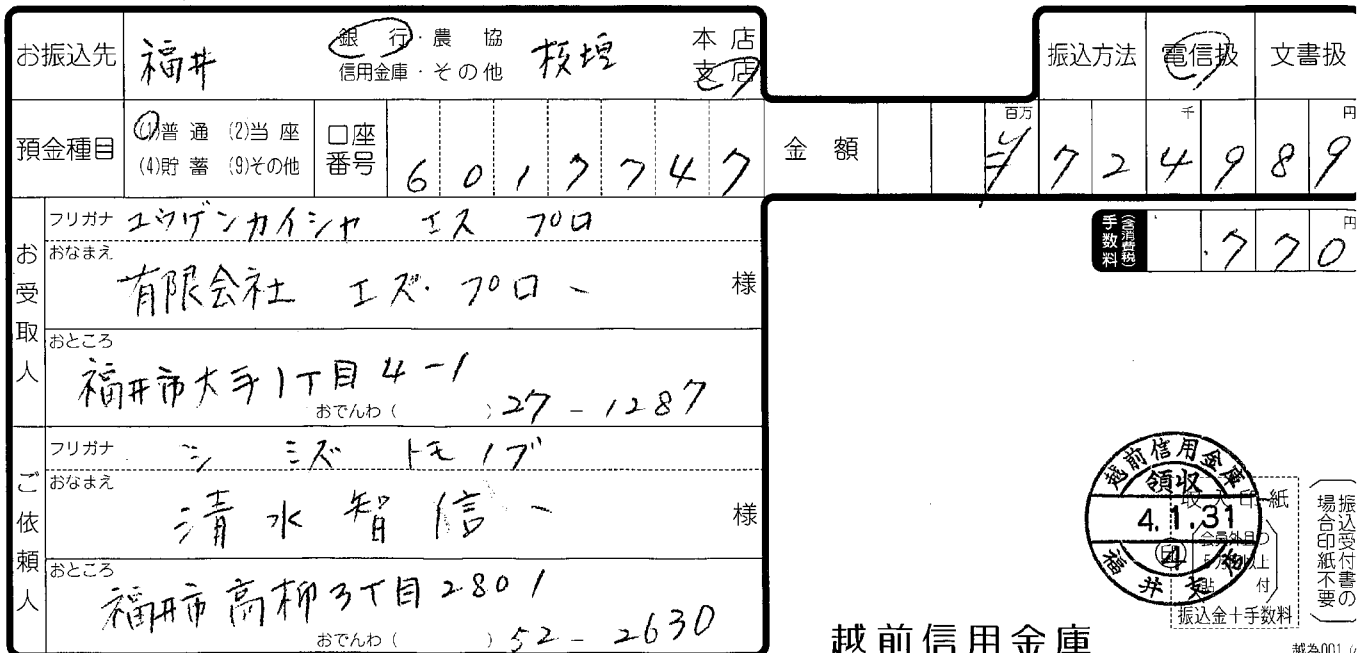 お振込先 福井 銀行・農協 信用金庫・その他 板垣 本店 支店
振込方法 電信扱 文書扱
預金種目 (1)普通 (2)当座 (4)貯蓄 (9)その他 口座番号 6017747
金額 百万 千 円 ¥724989
手数料 (含消費税) 770 円
お受取人
フリガナ ユウゲンカイシャ エス プロ
おなまえ 有限会社 エズ・プロ 様
おところ 福井市大手1丁目4-1
おでんわ ( ) 27-1287
ご依頼人
フリガナ シミズ トモノブ
おなまえ 清水智信 様
おところ 福井市高柳3丁目2801
おでんわ ( ) 52-2630
越前信用金庫
領収
4.1.31
印 4
福井支
収入印紙
貼付
振込金+手数料
振込受付書の場合印紙不要
越前信用金庫
越為001